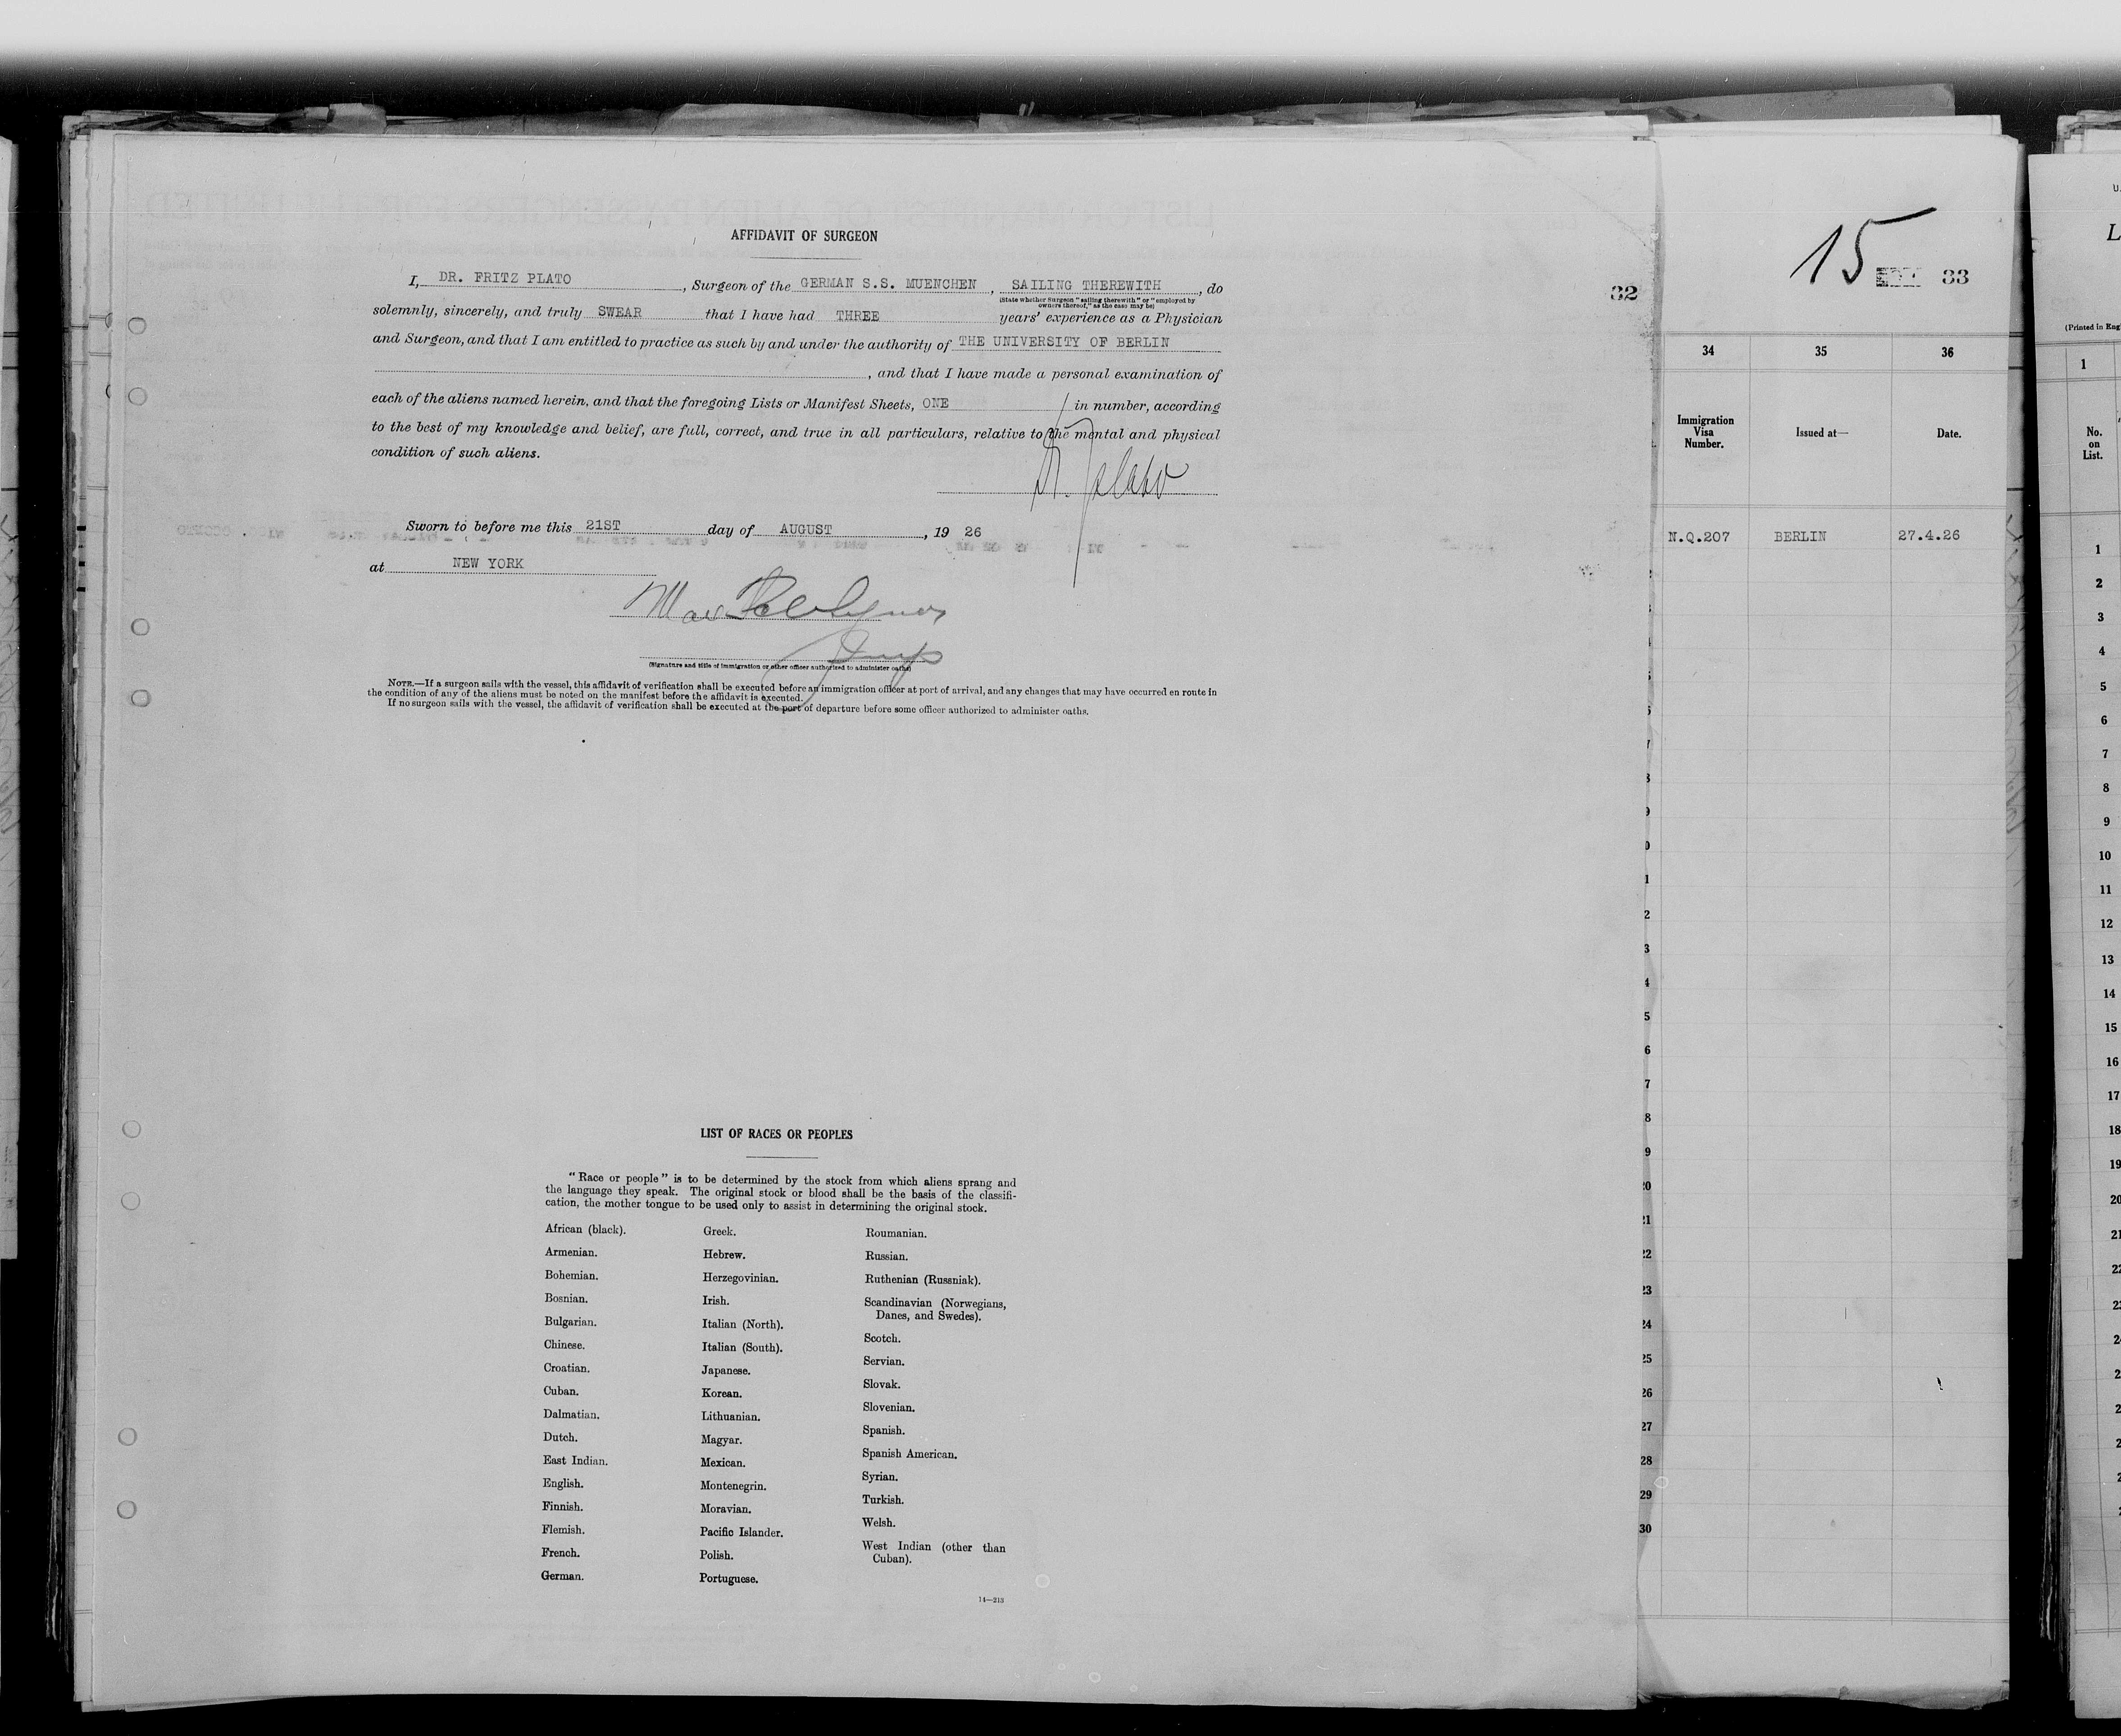 AFFIDAVIT OF SURGEON
I, DR. FRITZ PLATO, Surgeon of the GERMAN S.S. MUENCHEN, SAILING THEREWITH, do
(State whether Surgeon "sailing therewith" or "employed by
owners thereof," as the case may be)
solemnly, sincerely, and truly SWEAR that I have had THREE years' experience as a Physician
and Surgeon, and that I am entitled to practice as such by and under the authority of THE UNIVERSITY OF BERLIN
, and that I have made a personal examination of
each of the aliens named herein, and that the foregoing Lists or Manifest Sheets, ONE in number, according
to the best of my knowledge and belief, are full, correct, and true in all particulars, relative to the mental and physical
condition of such aliens.
Dr. Plato
Sworn to before me this 21ST day of AUGUST, 19 26
at NEW YORK
(Signature and title of immigration or other officer authorized to administer oaths)
NOTE.—If a surgeon sails with the vessel, this affidavit of verification shall be executed before an immigration officer at port of arrival, and any changes that may have occurred en route in
the condition of any of the aliens must be noted on the manifest before the affidavit is executed.
If no surgeon sails with the vessel, the affidavit of verification shall be executed at the port of departure before some officer authorized to administer oaths.
LIST OF RACES OR PEOPLES
"Race or people" is to be determined by the stock from which aliens sprang and
the language they speak. The original stock or blood shall be the basis of the classifi-
cation, the mother tongue to be used only to assist in determining the original stock.
African (black).
Armenian.
Bohemian.
Bosnian.
Bulgarian.
Chinese.
Croatian.
Cuban.
Dalmatian.
Dutch.
East Indian.
English.
Finnish.
Flemish.
French.
German.
Greek.
Hebrew.
Herzegovinian.
Irish.
Italian (North).
Italian (South).
Japanese.
Korean.
Lithuanian.
Magyar.
Mexican.
Montenegrin.
Moravian.
Pacific Islander.
Polish.
Portuguese.
Roumanian.
Russian.
Ruthenian (Russniak).
Scandinavian (Norwegians,
Danes, and Swedes).
Scotch.
Servian.
Slovak.
Slovenian.
Spanish.
Spanish American.
Syrian.
Turkish.
Welsh.
West Indian (other than
Cuban).
14—213
32
15
33
34 35 36
Immigration
Visa
Number.
Issued at—
Date.
N.Q.207 BERLIN 27.4.26
22
23
24
25
26
27
28
29
30
L
(Printed in Eng
1
No.
on
List.
1
2
3
4
5
6
7
8
9
10
11
12
13
14
15
16
17
18
19
20